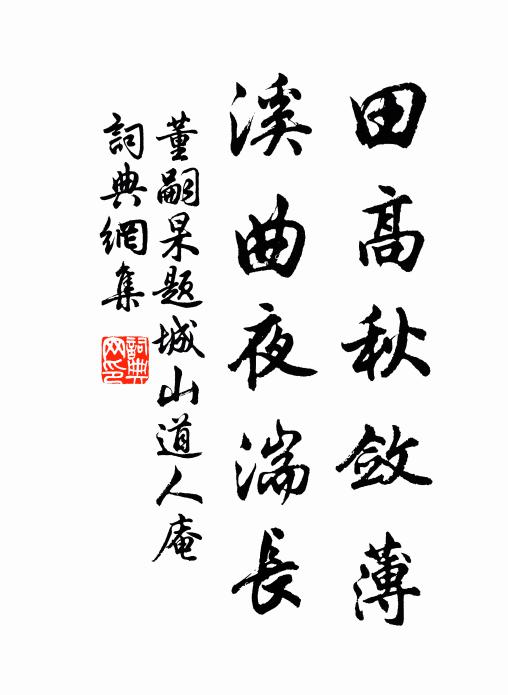 田高秋斂薄
溪曲夜湍長
董嗣杲題城山道人庵
詞典網集
詞典網印